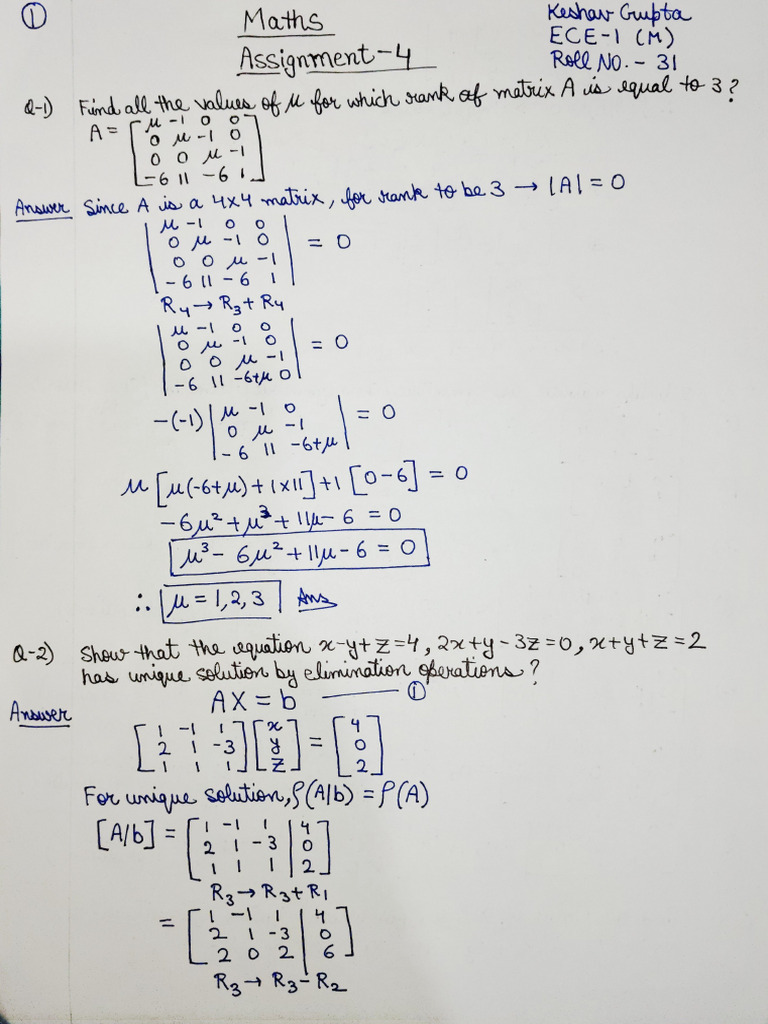 ①
Maths
Assignment-4
Keshav Gupta
ECE-1 (M)
Roll No. - 31
Q-1) Find all the values of μ for which rank of matrix A is equal to 3?
A = [μ -1 0 0
0 μ -1 0
0 0 μ -1
-6 11 -6 1]
Answer Since A is a 4x4 matrix, for rank to be 3 → |A| = 0
|μ -1 0 0
0 μ -1 0
0 0 μ -1
-6 11 -6 1| = 0
R4 → R3 + R4
|μ -1 0 0
0 μ -1 0
0 0 μ -1
-6 11 -6+μ 0| = 0
-(-1) |μ -1 0
0 μ -1
-6 11 -6+μ| = 0
μ [μ(-6+μ) + 1x11] + 1 [0-6] = 0
-6μ² + μ³ + 11μ - 6 = 0
μ³ - 6μ² + 11μ - 6 = 0
∴ μ = 1, 2, 3 Ans
Q-2) Show that the equation x-y+z=4, 2x+y-3z=0, x+y+z=2
has unique solution by elimination operations?
Answer
AX = b ——— ①
[1 -1 1
2 1 -3
1 1 1] [x
y
z] = [4
0
2]
For unique solution, ρ(A/b) = ρ(A)
[A/b] = [1 -1 1 | 4
2 1 -3 | 0
1 1 1 | 2]
R3 → R3 + R1
= [1 -1 1 | 4
2 1 -3 | 0
2 0 2 | 6]
R3 → R3 - R2